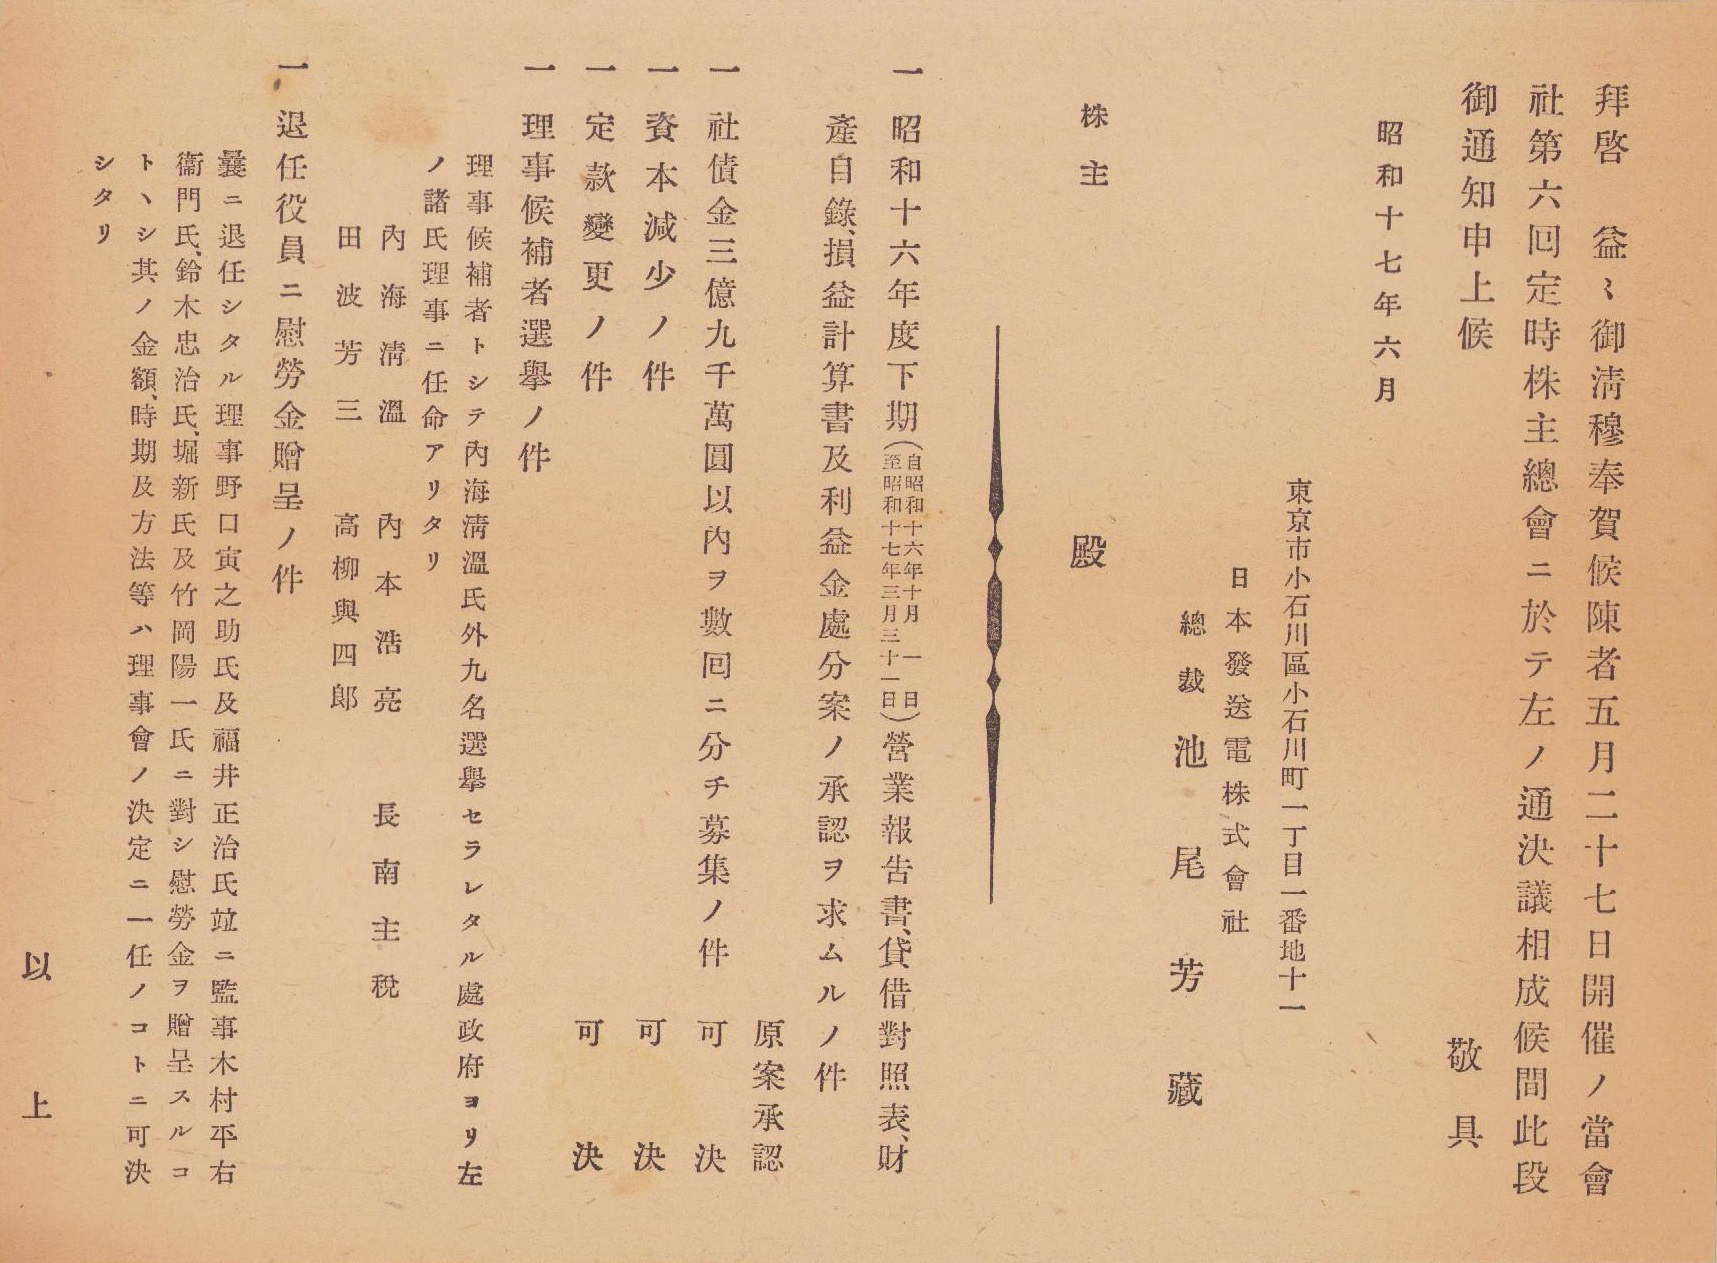 拜啓　益〻御淸穆奉賀候陳者五月二十七日開催ノ當會
社第六回定時株主總會ニ於テ左ノ通決議相成候間此段
御通知申上候
敬具
昭和十七年六月
東京市小石川區小石川町一丁目一番地十一
日本發送電株式會社
總裁 池尾芳藏
株主　殿
一　昭和十六年度下期(自昭和十六年十月一日至昭和十七年三月三十一日)營業報吿書、貸借對照表、財
產目錄、損益計算書及利益金處分案ノ承認ヲ求ムルノ件
原案承認
一　社債金三億九千萬圓以內ヲ數回ニ分チ募集ノ件　可決
一　資本減少ノ件　可決
一　定款變更ノ件　可決
一　理事候補者選擧ノ件
理事候補者トシテ內海淸溫氏外九名選擧セラレタル處政府ヨリ左
ノ諸氏理事ニ任命アリタリ
內海淸溫　內本浩亮　長南主稅
田波芳三　高柳與四郞
一　退任役員ニ慰勞金贈呈ノ件
曩ニ退任シタル理事野口寅之助氏及福井正治氏竝ニ監事木村平右
衞門氏、鈴木忠治氏、堀新氏及竹岡陽一氏ニ對シ慰勞金ヲ贈呈スルコ
トヽシ其ノ金額、時期及方法等ハ理事會ノ決定ニ一任ノコトニ可決
シタリ
以上